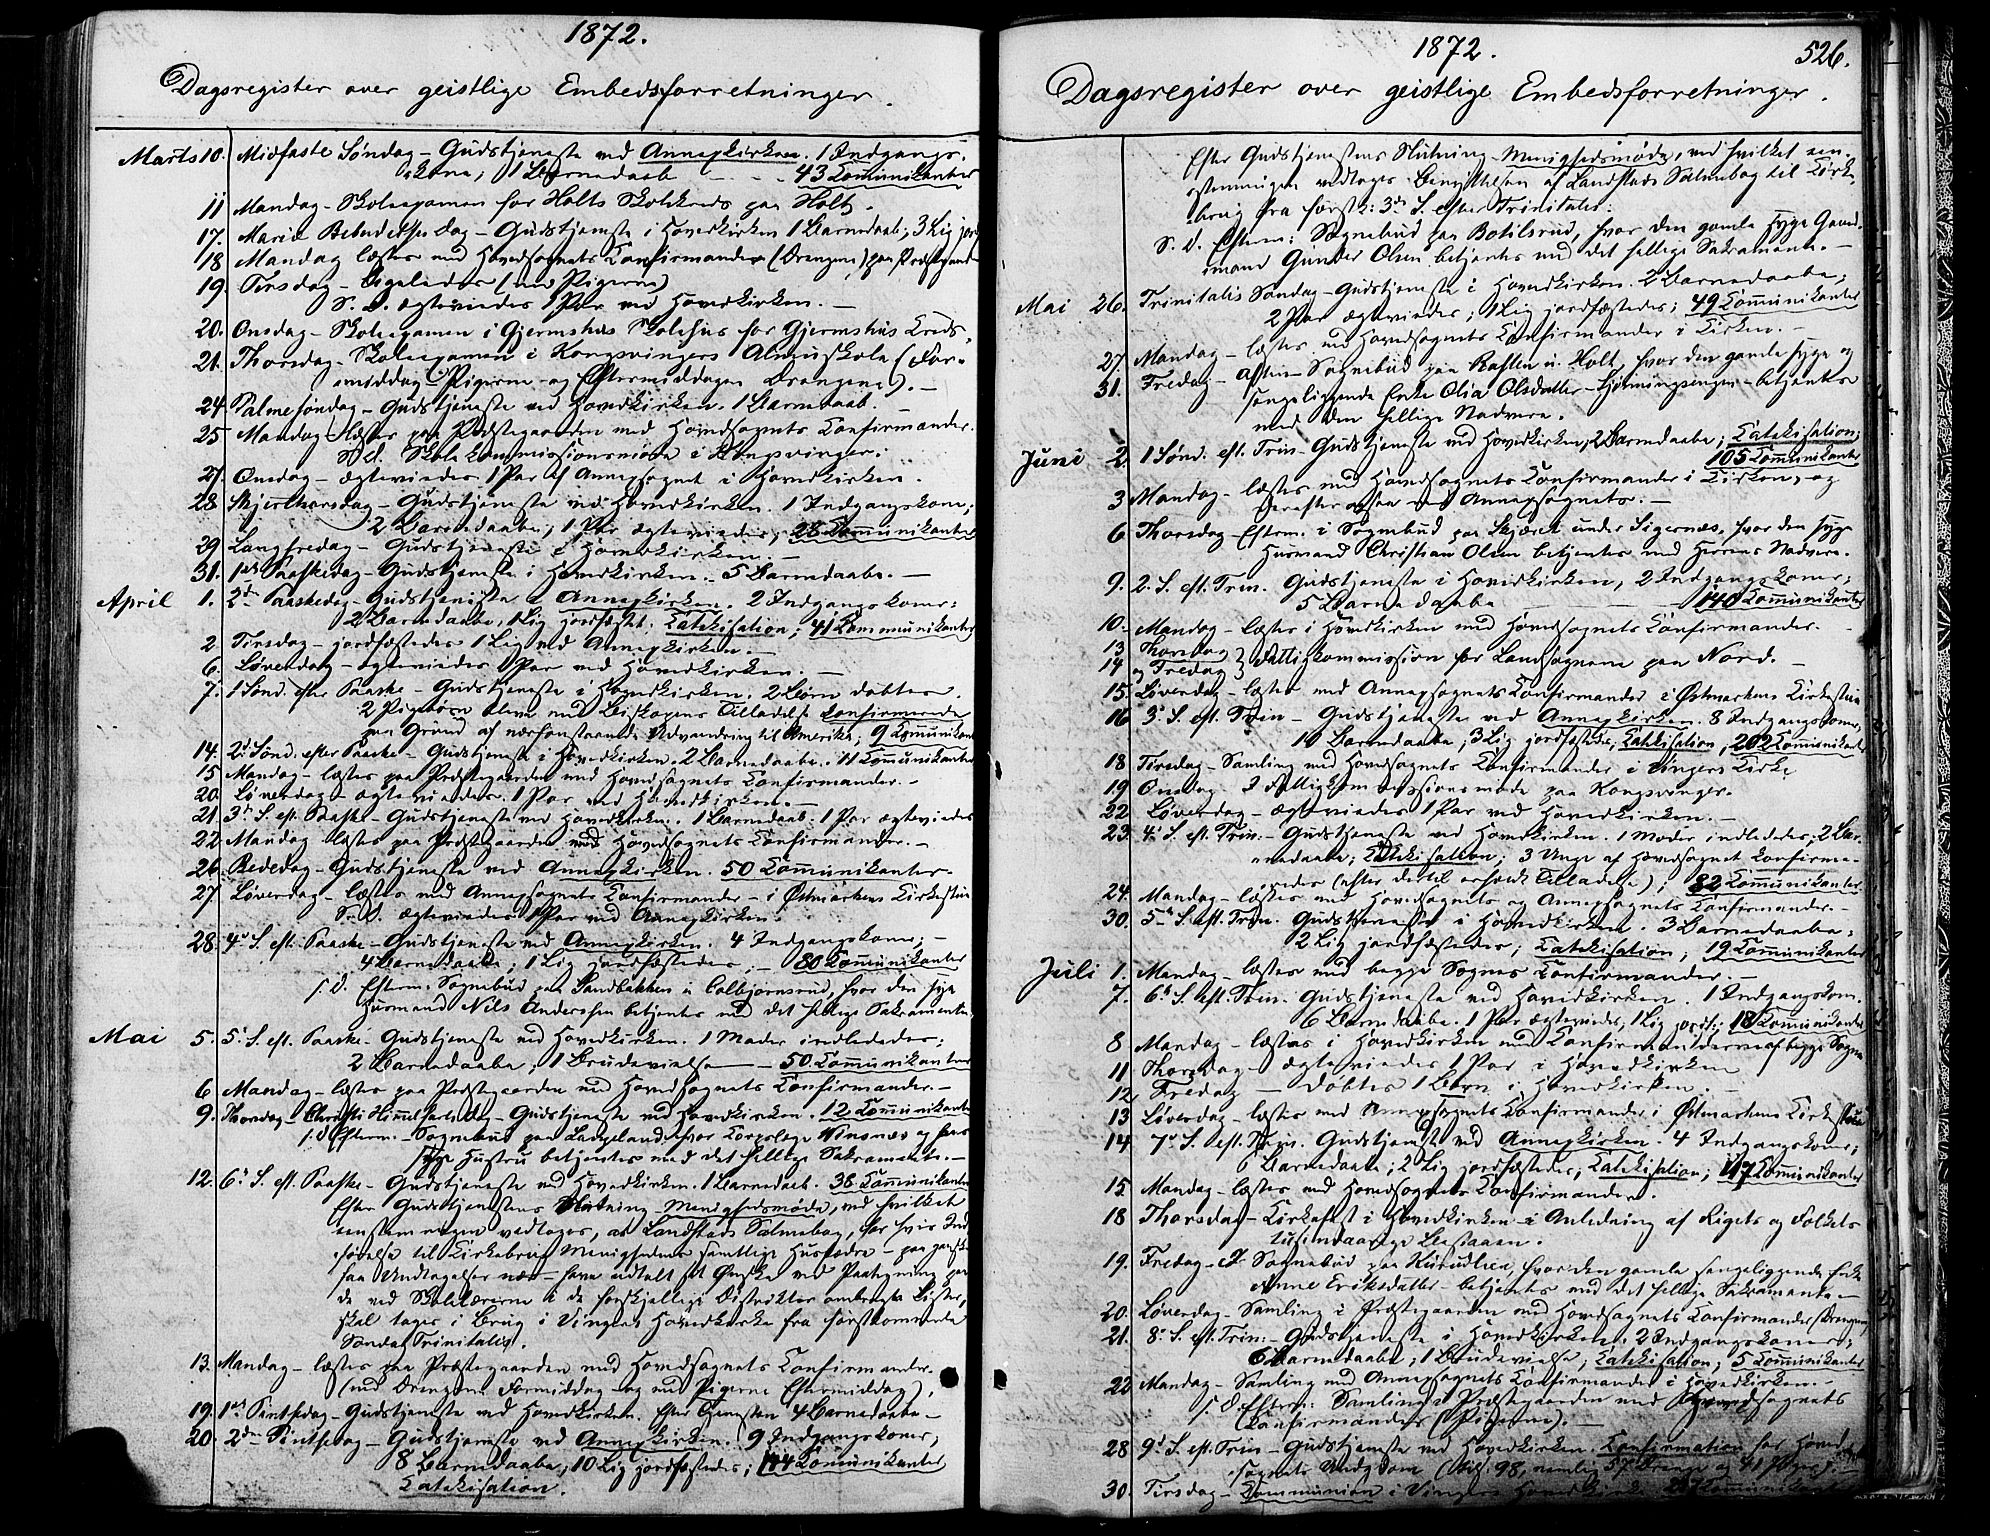 1872.
Dagsregister over geistlige Embedsforretninger.
Marts 10. Midfaste Søndag - Gudstjeneste ved Annexkirken. 1 Indgangs-
kone, 1 Barnedaab - - - 43 Communikanter
11 Mandag - Skoleexamen for Holts Skolekreds paa Holt.
17. Mariæ Bebudelses Dag - Gudstjeneste i Hovedkirken 1 Barnedaab; 3 Lig jord
18 Mandag læstes med Hovedsognets Confirmander (Drengene) paa Præstegaard
19. Tirsdag - ligeledes (med Pigerne)
S. D. ægteviedes 1 Par ved Hovedkirken. -
20. Onsdag - Skoleexamen i Gjermshus Skolehus for Gjermshus Kreds.
21. Thorsdag - Skoleexamen i Kongsvingers Almuskole (For-
middag Pigerne - og Eftermiddagen Drengene). -
24. Palmesøndag - Gudstjeneste ved Hovedkirken. 1 Barnedaab. -
25 Mandag læstes paa Præstegaarden med Hovedsognets Confirmander.
S. d. Skolekommissionsmøde i Kongsvinger.
27. Onsdag - ægteviedes 1 Par af Annexsognet i Hovedkirken.
28 Skjærthorsdag - Gudstjeneste ved Hovedkirken. 1 Indgangskone;
2 Barnedaabe, 1 Par ægteviedes; 28 Communikanter
29 Langfredag - Gudstjeneste i Hovedkirken. -
31. 1ste Paaskedag - Gudstjeneste i Hovedkirken. - 5 Barnedaabe. -
April 1. 2den Paaskedag - Gudstjeneste i Annexkirken. 2 Indgangskoner;
2 Barnedaabe, 1 Lig jordfæstet, Catekisation; 41 Communikanter
2 Tirsdag - jordfæstedes 1 Lig ved Annexkirken. -
6. Løverdag - ægteviedes 1 Par ved Hovedkirken. -
7. 1 Sønd. efter Paaske - Gudstjeneste i Hovedkirken. 2 Børn døbtes.
2 Pigebørn bleve med Biskopens Tilladelse confirmerede
paa Grund af nærforestaaende Udvandring til Amerika; 9 Communik
14. 2d Sønd. efter Paaske - Gudstjeneste i Hovedkirken. 2 Barnedaabe. 11 Communikanter
15 Mandag - læstes paa Præstegaarden med Hovedsognets Confirmander. -
20. Løverdag - ægteviedes 1 Par ved Hovedkirken. -
21. 3die S. eft. Paaske - Gudstjeneste ved Hovedkirken. 1 Barnedaab. 1 Par ægteviedes
22 Mandag læstes paa Præstegaarden med Hovedsognets Confirmander. -
26. Bededag - Gudstjeneste ved Annexkirken. 50 Communikanter.
27. Løverdag - læstes med Annexsognets Confirmander - i Østmarkens Kirkestue
S. D. ægteviedes 1 Par ved Annexkirken.
28. 4de S. eft. Paaske - Gudstjeneste ved Annexkirken. 4 Indgangskoner; -
4 Barnedaabe; 1 Lig jordfæstedes; - 80 Communikanter
S. D. Efterm. Sognebud paa Sandbakken u. Colbjørnsrud, hvor den syge
Husmand Nils Anderssen betjentes med det hellige Sakramente.
Mai 5. 5te S. eft. Paaske - Gudstjeneste ved Hovedkirken. 1 Moder indlededes;
2 Barnedaabe, 1 Brudevielse - 50 Communikanter
6 Mandag - læstes paa Præstegaarden med Hovedsognets Confirmander. -
9. Thorsdag - Christi Himmelfartsdag - Gudstjeneste ved Hovedkirken. 12 Communikanter
S. D. Efterm. - Sognebud paa Langeland, hvor Corpslæge Winsnes og hans
syge Hustru betjentes med det hellige Sakramente. -
12. 6te S. eft. Paaske - Gudstjeneste ved Hovedkirken. 1 Barnedaab. 36 Communikanter
Efter Gudstjenestens Slutning - Menighedsmøde, ved hvilket
eenstemmigen vedtoges, at Landstads Salmebog, for hvis Ind-
førelse til Kirkebrug Menighedens samtlige Husfædre - paa ganske
faa Undtagelser nær - have udtalt sit Ønske ved Paategning paa
de ved Skolelærerne i de forskjellige Distrikter ombragte Lister,
skal tages i Brug i Vingers Hovedkirke fra førstkommende
Søndag Trinitatis.
13. Mandag - læstes paa Præstegaarden med Hovedsognets Confirmander.
(med Drengene Formiddag og med Pigerne Eftermiddag).
19. 1ste Pintsedag - Gudstjeneste ved Hovedkirken. Efter Tjenesten 4 Barnedaabe -
20. 2den Pintsedag - Gudstjeneste ved Annexkirken. 9 Indgangskoner;
8 Barnedaabe; 10 Lig jordfæstedes; 144 Communikanter
Catekisation.
1872.
526.
Dagsregister over geistlige Embedsforretninger.
Efter Gudstjenestens Slutning - Menighedsmøde, ved hvilket een-
stemmigen vedtoges Benyttelsen af Landstads Salmebog til Kirke-
brug fra førstk: 3die S. efter Trinitatis.
S. D. Efterm: Sognebud paa Botilsrud, hvor den gamle syge Gaard-
mand Gunder Olsen betjentes med det hellige Sakramente. -
Mai 26. Trinitatis Søndag - Gudstjeneste i Hovedkirken. 2 Barnedaabe;
2 Par ægteviedes; 1 Lig jordfæstedes; 49 Communikanter
27. Mandag - læstes med Hovedsognets Confirmander i Kirken. -
31. Fredag - Sognebud paa u. Holt, hvor den gamle syge og
sengeliggende Enke Olia Olsdatter - betjentes
med den hellige Nadvere.
Juni 2. 1 Sønd. eft. Trin - Gudstjeneste ved Hovedkirken, 2 Barnedaabe; Catekisation;
105 Communikanter
3 Mandag - læstes med Hovedsognets Confirmander i Kirken, og
derefter med Annexsognets. -
6 Thorsdag - Efterm. i Sognebud paa Skjæret under Sigernes, hvor den syge
Husmand Christian Olsen betjentes med Herrens Nadvere.
9. 2. S. eft. Trin. Gudstjeneste i Hovedkirken, 2 Indgangskoner;
5 Barnedaabe - 140 Communikanter
10. Mandag - læstes i Hovedkirken med Hovedsognets Confirmander. -
13 Thorsdag
14 og Fredag } Fattigkommission for Landsognene paa Nord. -
15. Løverdag - læstes med Annexsognets Confirmander i Østmarkens Kirkestue
16 3die S. eft. Trin - Gudstjeneste ved Annexkirken. 8 Indgangskoner,
10 Barnedaabe, 3 Lig jordfæstedes; Catekisation; 202 Communikanter
18 Tirsdag - Samling med Hovedsognets Confirmander i Vingers Kirke
19 Onsdag - Fattigkommissionsmøde paa Kongsvinger.
22 Løverdag - ægteviedes 1 Par ved Hovedkirken. -
23. 4de S. eft. Trin. - Gudstjeneste ved Hovedkirken. 1 Moder indlededes, 2 Bar-
nedaabe; Catekisation; 3 Unge af Hovedsognet confirme-
redes (efter dertil erholdt Tilladelse); 82 Communikanter
24. Mandag - læstes med Hovedsognets og Annexsognets Confirmander. -
30. 5te S. eft. Trin. Gudstjeneste i Hovedkirken. 3 Barnedaabe;
2 Lig jordfæstedes; Catekisation, 19 Communikanter
Juli 1. Mandag - læstes med begge Sognes Confirmander. -
7. 6te S. eft. Trin. Gudstjeneste ved Hovedkirken. 1 Indgangskone.
6 Barnedaabe. 1 Par ægteviedes, 1 Lig jordf.; 18 Communikanter
8 Mandag - læstes i Hovedkirken med Confirmanderne af begge Sogne
11 Thorsdag - ægteviedes 1 Par i Hovedkirken
12 Fredag - døbtes 1 Barn i Hovedkirken.
13 Løverdag - læstes med Annexsognets Confirmander i Østmarkens Kirkestue
14 7de S. eft. Trin. Gudstjeneste ved Annexkirken. 4 Indgangskoner;
6 Barnedaabe; 2 Lig jordfæstedes; Catekisation; 117 Communikanter
15 Mandag - læstes med Hovedsognets Confirmander.
18 Thorsdag - Kirkefest i Hovedkirken i Anledning af Rigets og Folkets
tusindaarige Bestaaen.
19. Fredag - Sognebud paa, hvor den gamle sengeliggende Enke
Anne Eriksdatter betjentes med det hellige Sakramente -
20. Løverdag - Samling i Præstegaarden med Hovedsognets Confirmander (Drengene)
21. 8de S. eft. Trin: - Gudstjeneste i Hovedkirken. 2 Indgangskoner;
6 Barnedaabe; 1 Brudevielse; Catekisation; 5 Communikanter
22 Mandag - Samling med Annexsognets Confirmander i Hovedkirken. -
S. D. Efterm: Samling i Præstegaarden med Hovedsognets
Confirmander (Pigerne). -
28 9de S. eft. Trin - Gudstjeneste ved Hovedkirken. Confirmation for Hoved-
sognets Ungdom (98, nemlig 57 Drenge og 41 Piger). -
30. Tirsdag - Communion i Vingers Hovedkirke.